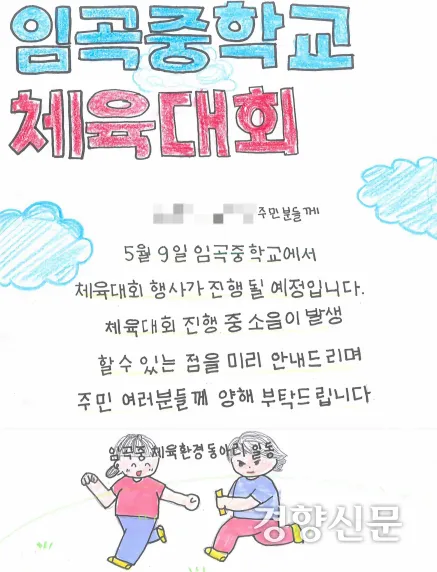 임곡중학교
체육대회
주민분들께
5월 9일 임곡중학교에서
체육대회 행사가 진행 될 예정입니다.
체육대회 진행 중 소음이 발생
할 수 있는 점을 미리 안내드리며
주민 여러분들께 양해 부탁드립니다
임곡중 체육환경동아리 일동
경향신문